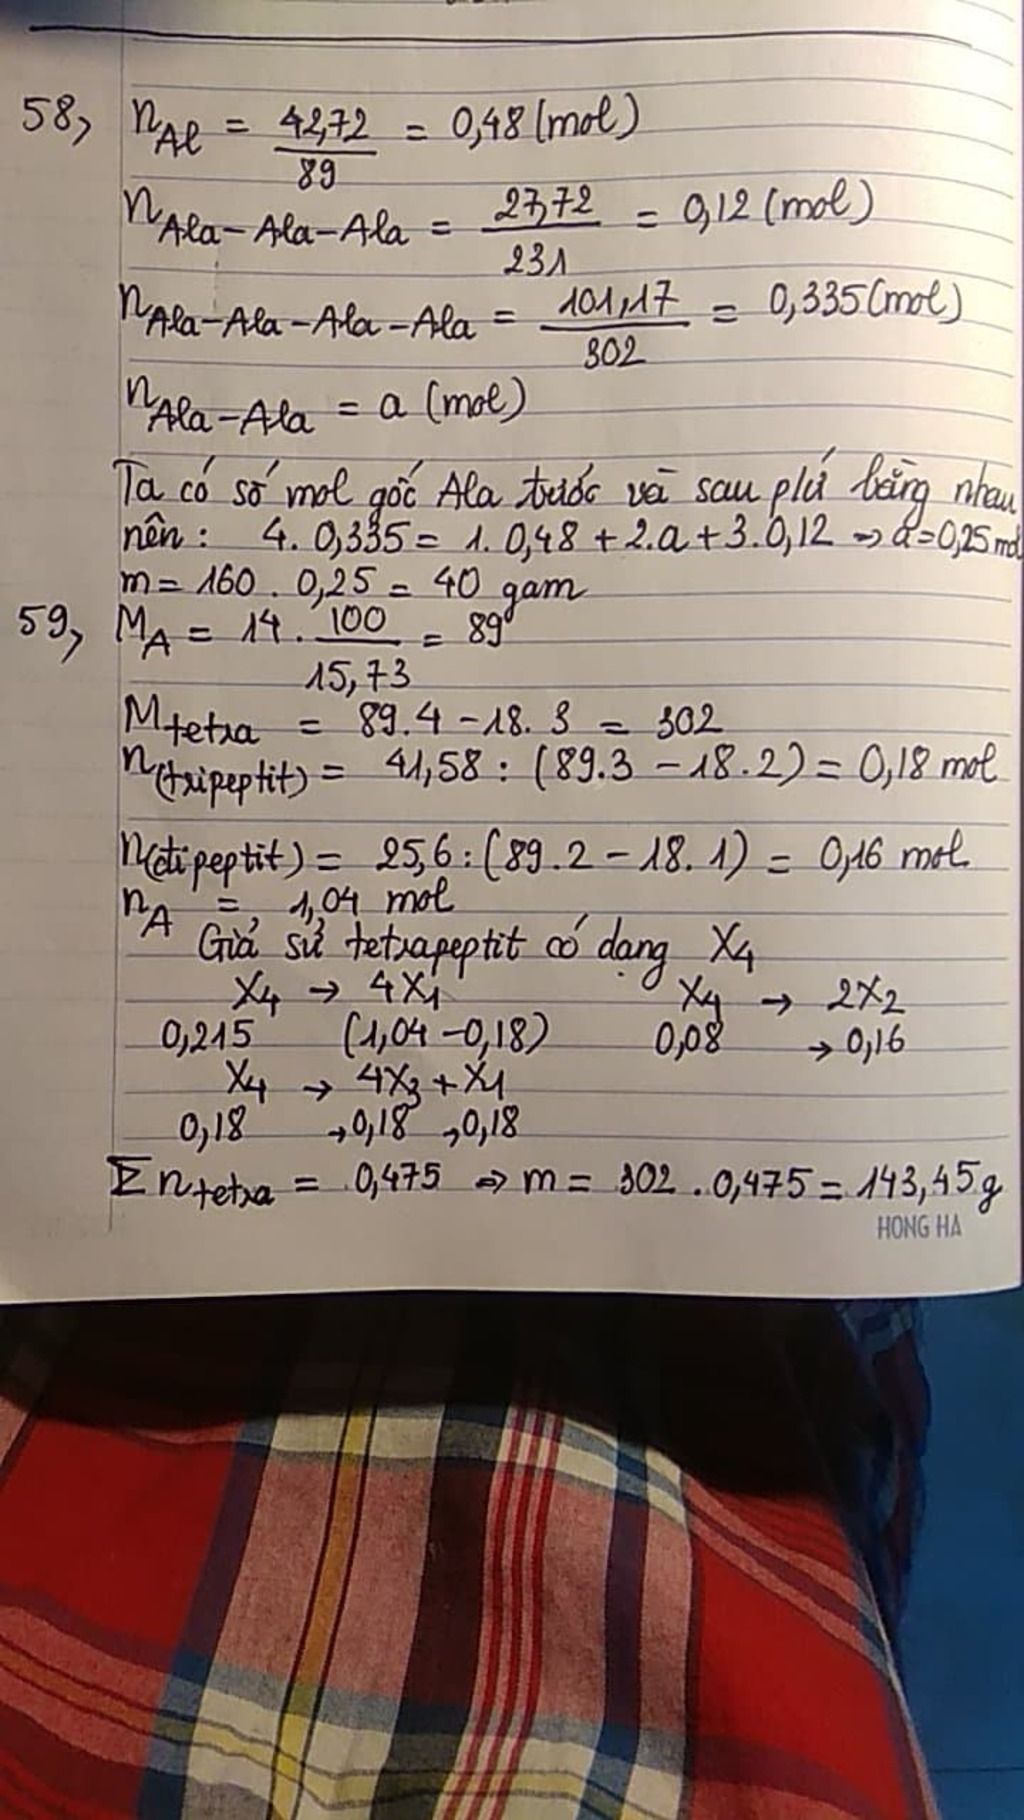 58, n_Al = 42,72/89 = 0,48 (mol)
n_Ala-Ala-Ala = 27,72/231 = 0,12 (mol)
n_Ala-Ala-Ala-Ala = 101,17/302 = 0,335 (mol)
n_Ala-Ala = a (mol)
Ta có số mol gốc Ala trước và sau pứ bằng nhau
nên : 4. 0,335 = 1. 0,48 + 2.a + 3.0,12 => a=0,25 mol
m = 160 . 0,25 = 40 gam
59, M_A = 14 . 100/15,73 = 89
M_tetra = 89.4 - 18. 3 = 302
n_(tripeptit) = 41,58 : (89.3 - 18.2) = 0,18 mol
n_(đipeptit) = 25,6 : (89.2 - 18. 1) = 0,16 mol
n_A = 1,04 mol
Giả sử tetrapeptit có dạng X₄
X₄ → 4X₁ X₄ → 2X₂
0,215 (1,04 - 0,18) 0,08 → 0,16
X₄ → 4X₃ + X₁
0,18 → 0,18 → 0,18
Σ n_tetra = 0,475 => m = 302 . 0,475 = 143,45 g
HONG HA